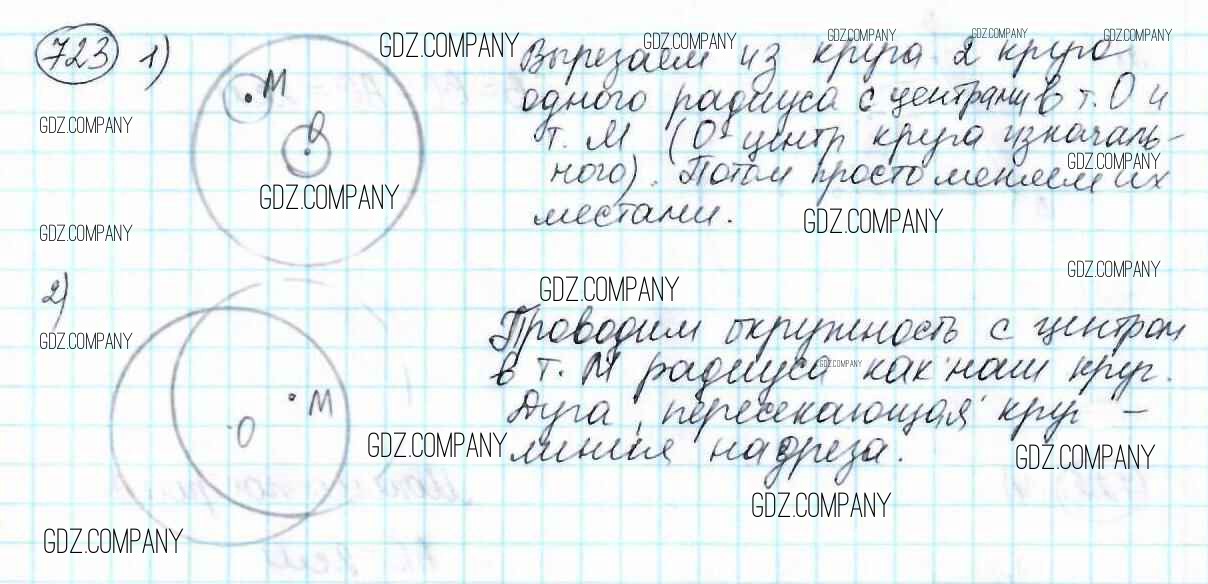 723 1) Вырезаем из круга 2 круга
одного радиуса с центрами в т. О и
т. М (О - центр круга изначаль-
ного). Потом просто меняем их
местами.
М
О
2)
Проводим окружность с центром
в т. М радиуса как наш круг.
Дуга, пересекающая круг -
линия надреза.
М
О
GDZ.COMPANY
GDZ.COMPANY
GDZ.COMPANY
GDZ.COMPANY
GDZ.COMPANY
GDZ.COMPANY
GDZ.COMPANY
GDZ.COMPANY
GDZ.COMPANY
GDZ.COMPANY
GDZ.COMPANY
GDZ.COMPANY
GDZ.COMPANY
GDZ.COMPANY
GDZ.COMPANY
GDZ.COMPANY
GDZ.COMPANY
GDZ.COMPANY